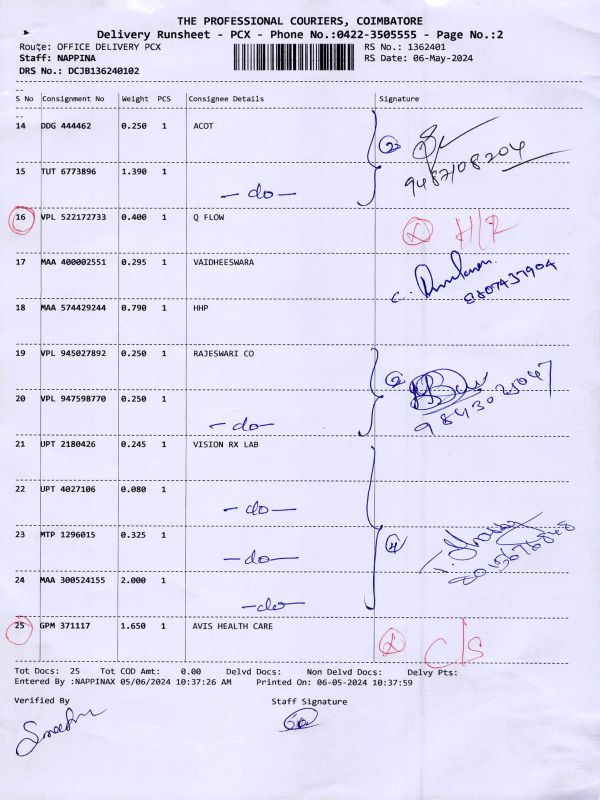 THE PROFESSIONAL COURIERS, COIMBATORE
Delivery Runsheet - PCX - Phone No.:0422-3505555 - Page No.:2
Route: OFFICE DELIVERY PCX RS No.: 1362401
Staff: NAPPINA RS Date: 06-May-2024
DRS No.: DCJB136240102
S No Consignment No Weight PCS Consignee Details Signature
14 DDG 444462 0.250 1 ACOT 2
9487108204
15 TUT 6773896 1.390 1
-do-
16 VPL 522172733 0.400 1 Q FLOW X H/R
17 MAA 400002551 0.295 1 VAIDHEESWARA
8807437904
18 MAA 574429244 0.790 1 HHP
19 VPL 945027892 0.250 1 RAJESWARI CO 2
20 VPL 947598770 0.250 1
-do- 9843025047
21 UPT 2180426 0.245 1 VISION RX LAB
22 UPT 4027106 0.080 1
-do-
23 MTP 1296015 0.325 1 4
-do-
24 MAA 300524155 2.000 1
-do-
25 GPM 371117 1.650 1 AVIS HEALTH CARE X C/S
Tot Docs: 25 Tot COD Amt: 0.00 Delvd Docs: Non Delvd Docs: Delvy Pts:
Entered By :NAPPINAX 05/06/2024 10:37:26 AM Printed On: 06-05-2024 10:37:59
Verified By Staff Signature